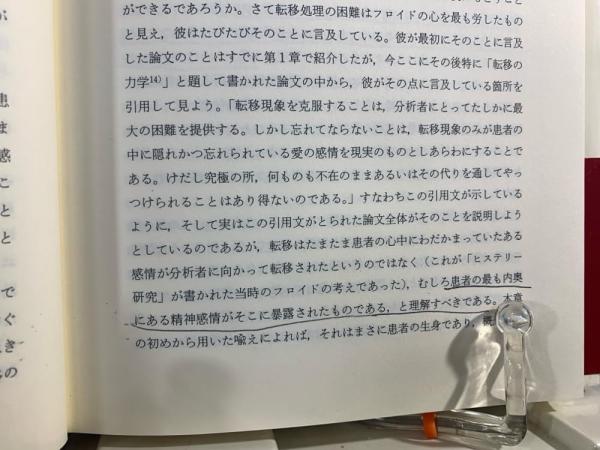 ができるであろうか。さて転移処理の困難はフロイドの心を最も労したもの
と見え，彼はたびたびそのことに言及している。彼が最初にそのことに言及
した論文のことはすでに第１章で紹介したが，今ここにその後特に「転移の
力学14)」と題して書かれた論文の中から，彼がその点に言及している箇所を
引用して見よう。「転移現象を克服することは，分析者にとってたしかに最
大の困難を提供する。しかし忘れてならないことは，転移現象のみが患者の
中に隠れかつ忘れられている愛の感情を現実のものとしあらわにすることで
ある。けだし究極の所，何ものも不在のままあるいはその代りを通してやっ
つけられることはあり得ないのである。」すなわちこの引用文が示している
ように，そして実はこの引用文がとられた論文全体がそのことを説明しよう
としているのであるが，転移はたまたま患者の心中にわだかまっていたある
感情が分析者に向かって転移されたというのではなく（これが「ヒステリー
研究」が書かれた当時のフロイドの考えであった），むしろ患者の最も内奥
にある精神感情がそこに暴露されたものである，と理解すべきである。本章
の初めから用いた喩えによれば，それはまさに患者の生身であり，
患
ま
感
こ
と
と
で
ぐ
き
の